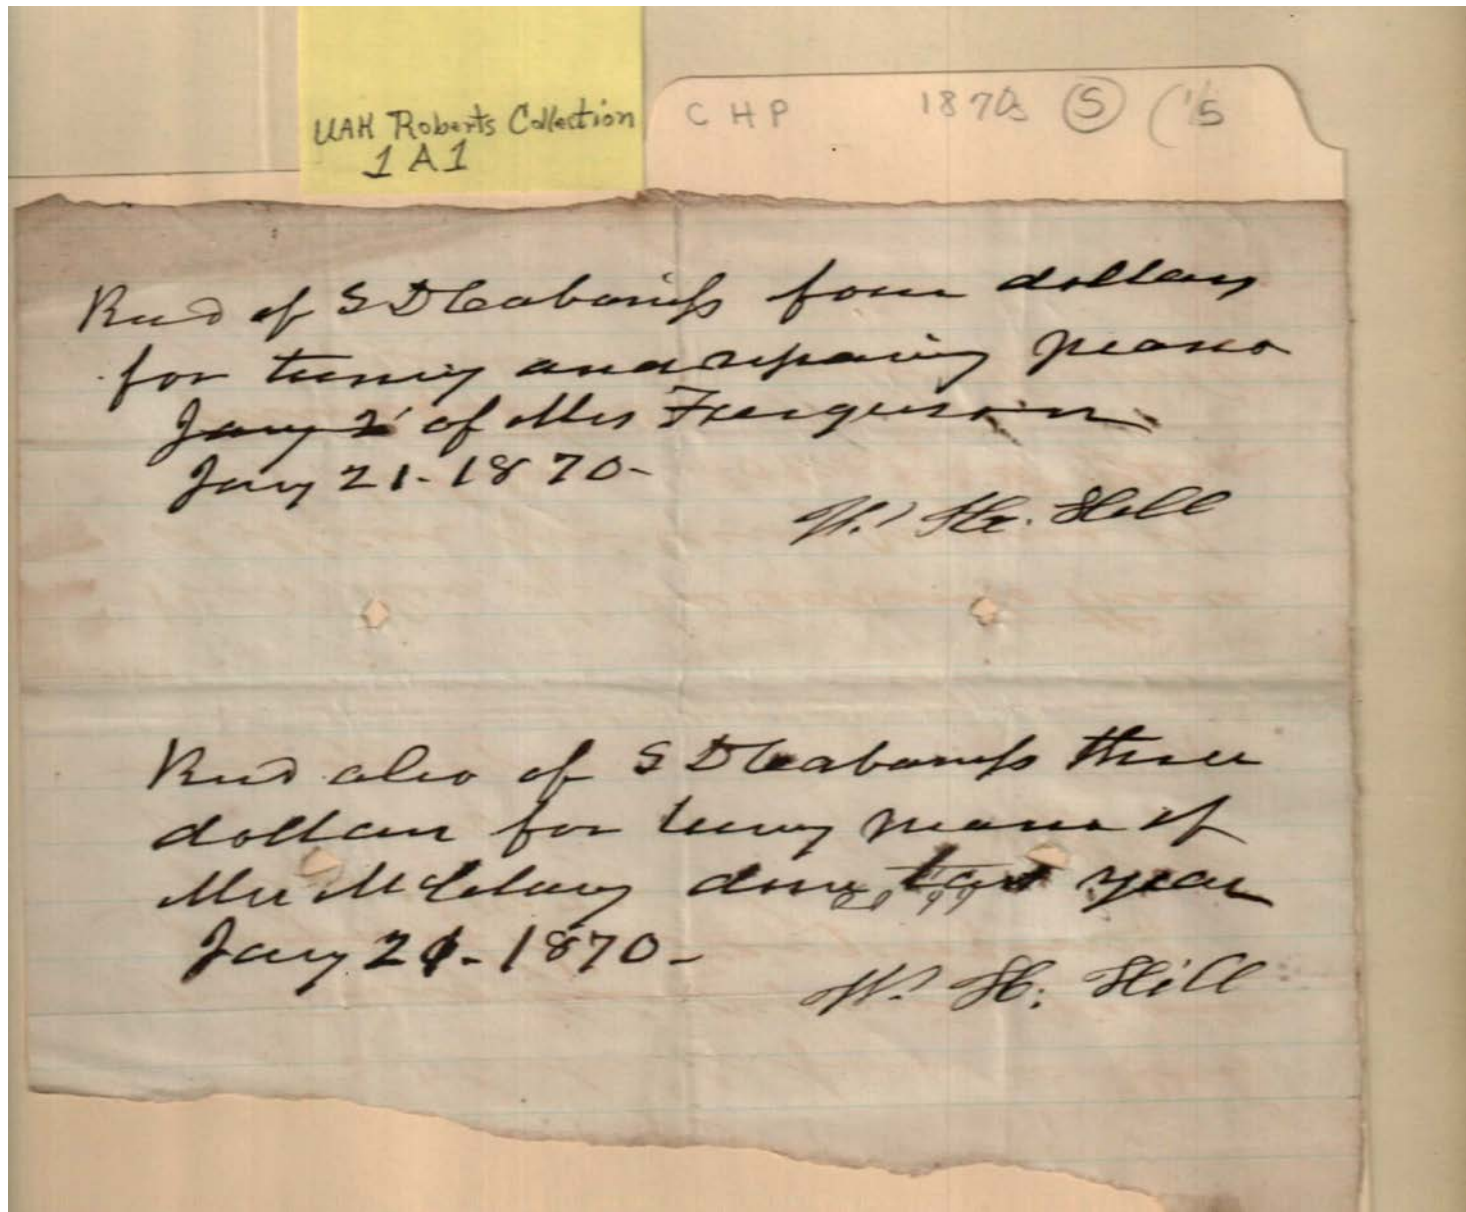 UAH Roberts Collection
1 A 1
C H P 1870s S ('5
Recd of S D Cabaniss four dollars
for tuning and repairing piano
Jany 2 of Mrs Fraguson
Jany 21. 1870-
W. H. Hill
Recd also of S D Cabaniss three
dollars for tuning piano of
Mrs McClung done last year
Jany 21. 1870-
W. H. Hill